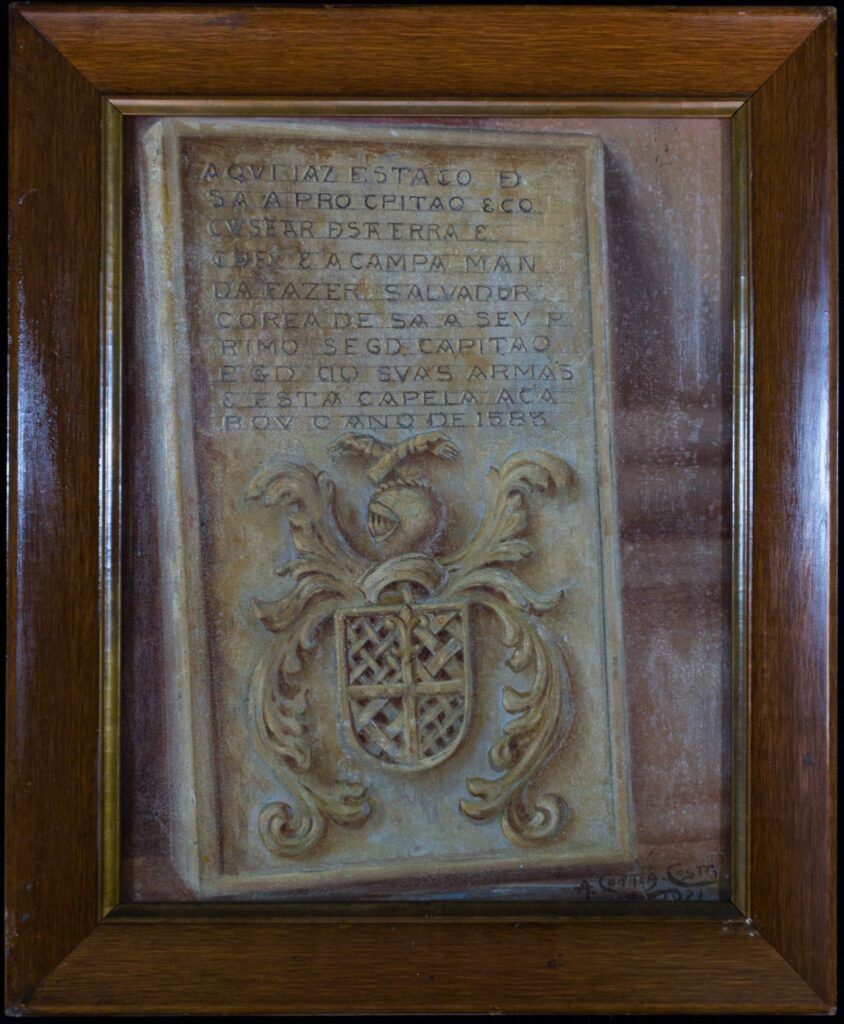 AQVI JAZ ESTACO D
SA A PRO CPITAO & CO
CVSTAR DSTA TERRA E
& A CAMPA MAN
DA FAZER SALVADOR
COREA DE SA A SEV P
RIMO SEGD CAPITAO
E GD CO SVAS ARMAS
& ESTA CAPELA ACA
BOV O ANO DE 1583
A. Costa